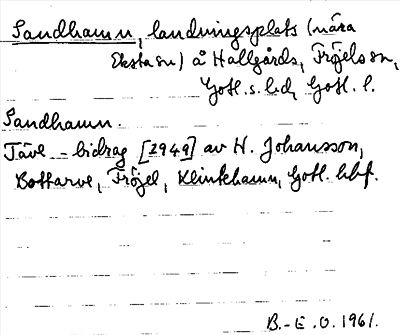 Sandhamn, landningsplats (nära
Eksta sn) å Hallgårds, Fröjels sn,
Gotl. s. hd, Gotl. l.
Sandhamn.
Tävl-bidrag [1949] av H. Johansson,
Bottarve, Fröjel, Klintehamn, Gotl. hbf.
B.-E. O. 1961.